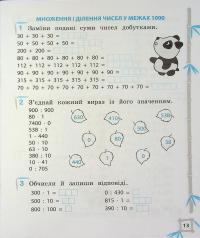 МНОЖЕННЯ І ДІЛЕННЯ ЧИСЕЛ У МЕЖАХ 1000
1 Заміни подані суми чисел добутками.
30 + 30 + 30 =
50 + 50 + 50 + 50 =
200 + 200 =
80 + 80 + 80 + 80 + 80 + 80 =
112 + 112 + 112 + 112 =
90 + 90 + 90 + 90 + 90 + 90 + 90 =
315 + 315 + 315 + 315 =
70 + 70 + 70 + 70 + 70 + 70 + 70 + 70 + 70 =
2 З'єднай кожний вираз із його значенням.
900 : 900
80 : 1
7400 · 0
538 : 1
1 · 440
50 · 10
63 · 10
380 : 10
10 · 41
0 : 705
630
410
500
538
1
80
0
440
38
0
3 Обчисли й запиши відповіді.
300 · 1 =
0 : 430 =
500 : 10 =
815 · 1 =
800 : 100 =
390 : 10 =
13